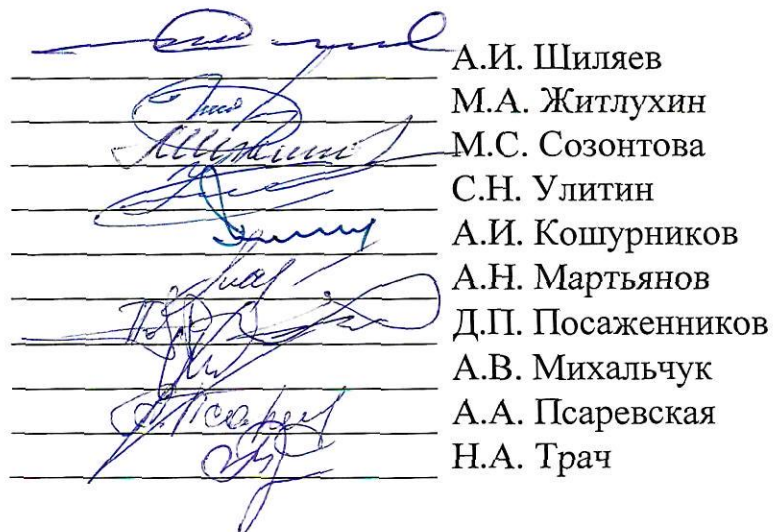 А.И. Шиляев
М.А. Житлухин
М.С. Созонтова
С.Н. Улитин
А.И. Кошурников
А.Н. Мартьянов
Д.П. Посаженников
А.В. Михальчук
А.А. Псаревская
Н.А. Трач